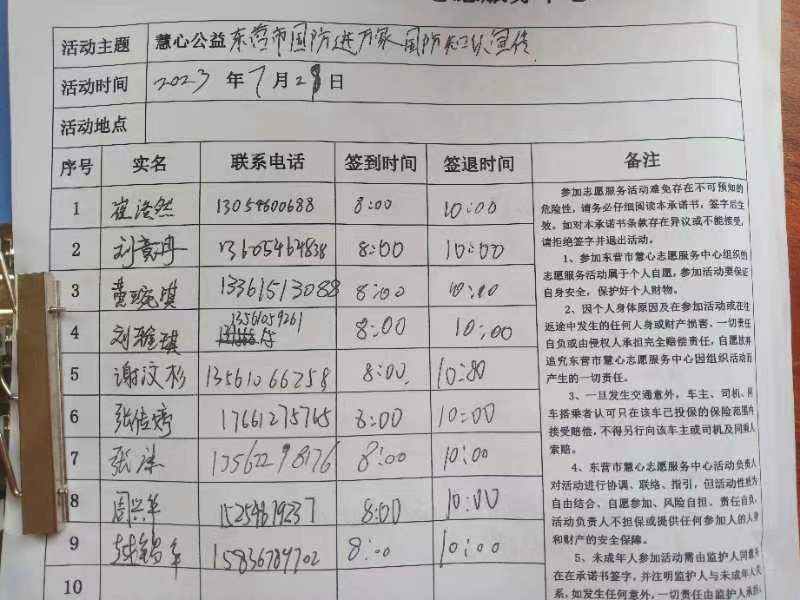 活动主题 慧心公益东营市国防进万家国防知识宣传
活动时间 2023 年 7 月 28 日
活动地点
序号 实名 联系电话 签到时间 签退时间 备注
1 崔浩然 13054600688 8:00 10:00
2 刘 13605464838 8:00 10:00
3 琬淇 13361513088 8:00 10:00
4 刘 琪 13561059261 8:00 10:00
5 谢汶杉 13561066258 8:00 10:00
6 张倍 17661275765 8:00 10:00
7 张 13562298176 8:00 10:00
8 周兴华 15254619237 8:00 10:00
9 15836789702 8:00 10:00
10
参加志愿服务活动难免存在不可预知的
危险性,请务必仔细阅读本承诺书,签字后生
效。如对本承诺书条款存在异议或不能接受,
请拒绝签字并退出活动。
1、参加东营市慧心志愿服务中心组织的
志愿服务活动属于个人自愿,参加活动要保证
自身安全,保护好个人财物。
2、因个人身体原因及在参加活动或在往
返途中发生的任何人身或财产损害,一切责任
自负或由侵权人承担完全赔偿责任,自愿放弃
追究东营市慧心志愿服务中心因组织活动而
产生的一切责任。
3、一旦发生交通意外,车主、司机、同
车搭乘者认可只在该车已投保的保险范围内
接受赔偿,不得另行向该车主或司机及同乘人
索赔。
4、东营市慧心志愿服务中心活动负责人
对活动进行协调、联络、指引,但活动性质为
自由结合、自愿参加、风险自担、责任自负,
活动负责人不担保或提供任何参加人的人身
和财产的安全保障。
5、未成年人参加活动需由监护人同意并
在在承诺书签字,并注明监护人与未成年人关
系,如发生任何意外,一切责任由监护人承担。